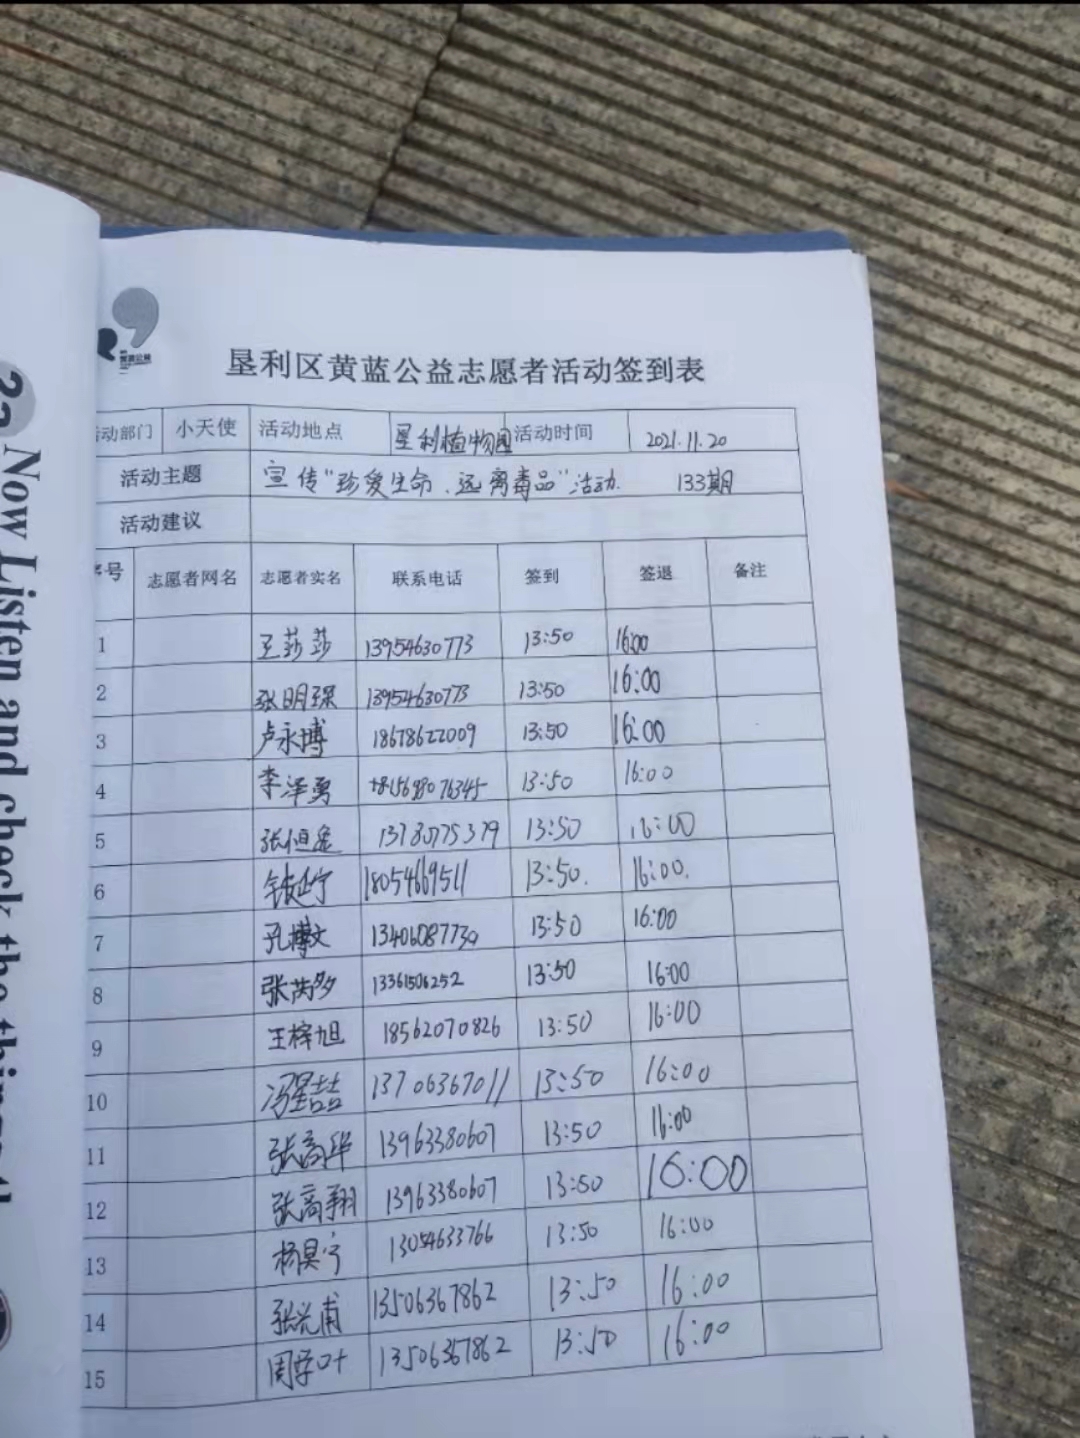 Now Listen and check the
垦利区黄蓝公益志愿者活动签到表
活动部门 小天使 活动地点 垦利植物园 活动时间 2021.11.20
活动主题 宣传"珍爱生命、远离毒品"活动. 133期
活动建议
序号 志愿者网名 志愿者实名 联系电话 签到 签退 备注
1 王莎莎 13954630773 13:50 16:00
2 张明琛 13954630773 13:50 16:00
3 卢永博 18678622009 13:50 16:00
4 李泽勇 13:50 16:00
5 张恒 13780775379 13:50 16:00
6 18054669511 13:50. 16:00.
7 孔博文 13406087730 13:50 16:00
8 张芮多 13361506252 13:50 16:00
9 王梓旭 18562070826 13:50 16:00
10 冯星喆 13706367011 13:50 16:00
11 张高华 13963380607 13:50 16:00
12 张高翔 13963380607 13:50 16:00
13 杨昊宁 13054633766 13:50 16:00
14 张光甫 13506367862 13:50 16:00
15 周学叶 13506367862 13:50 16:00